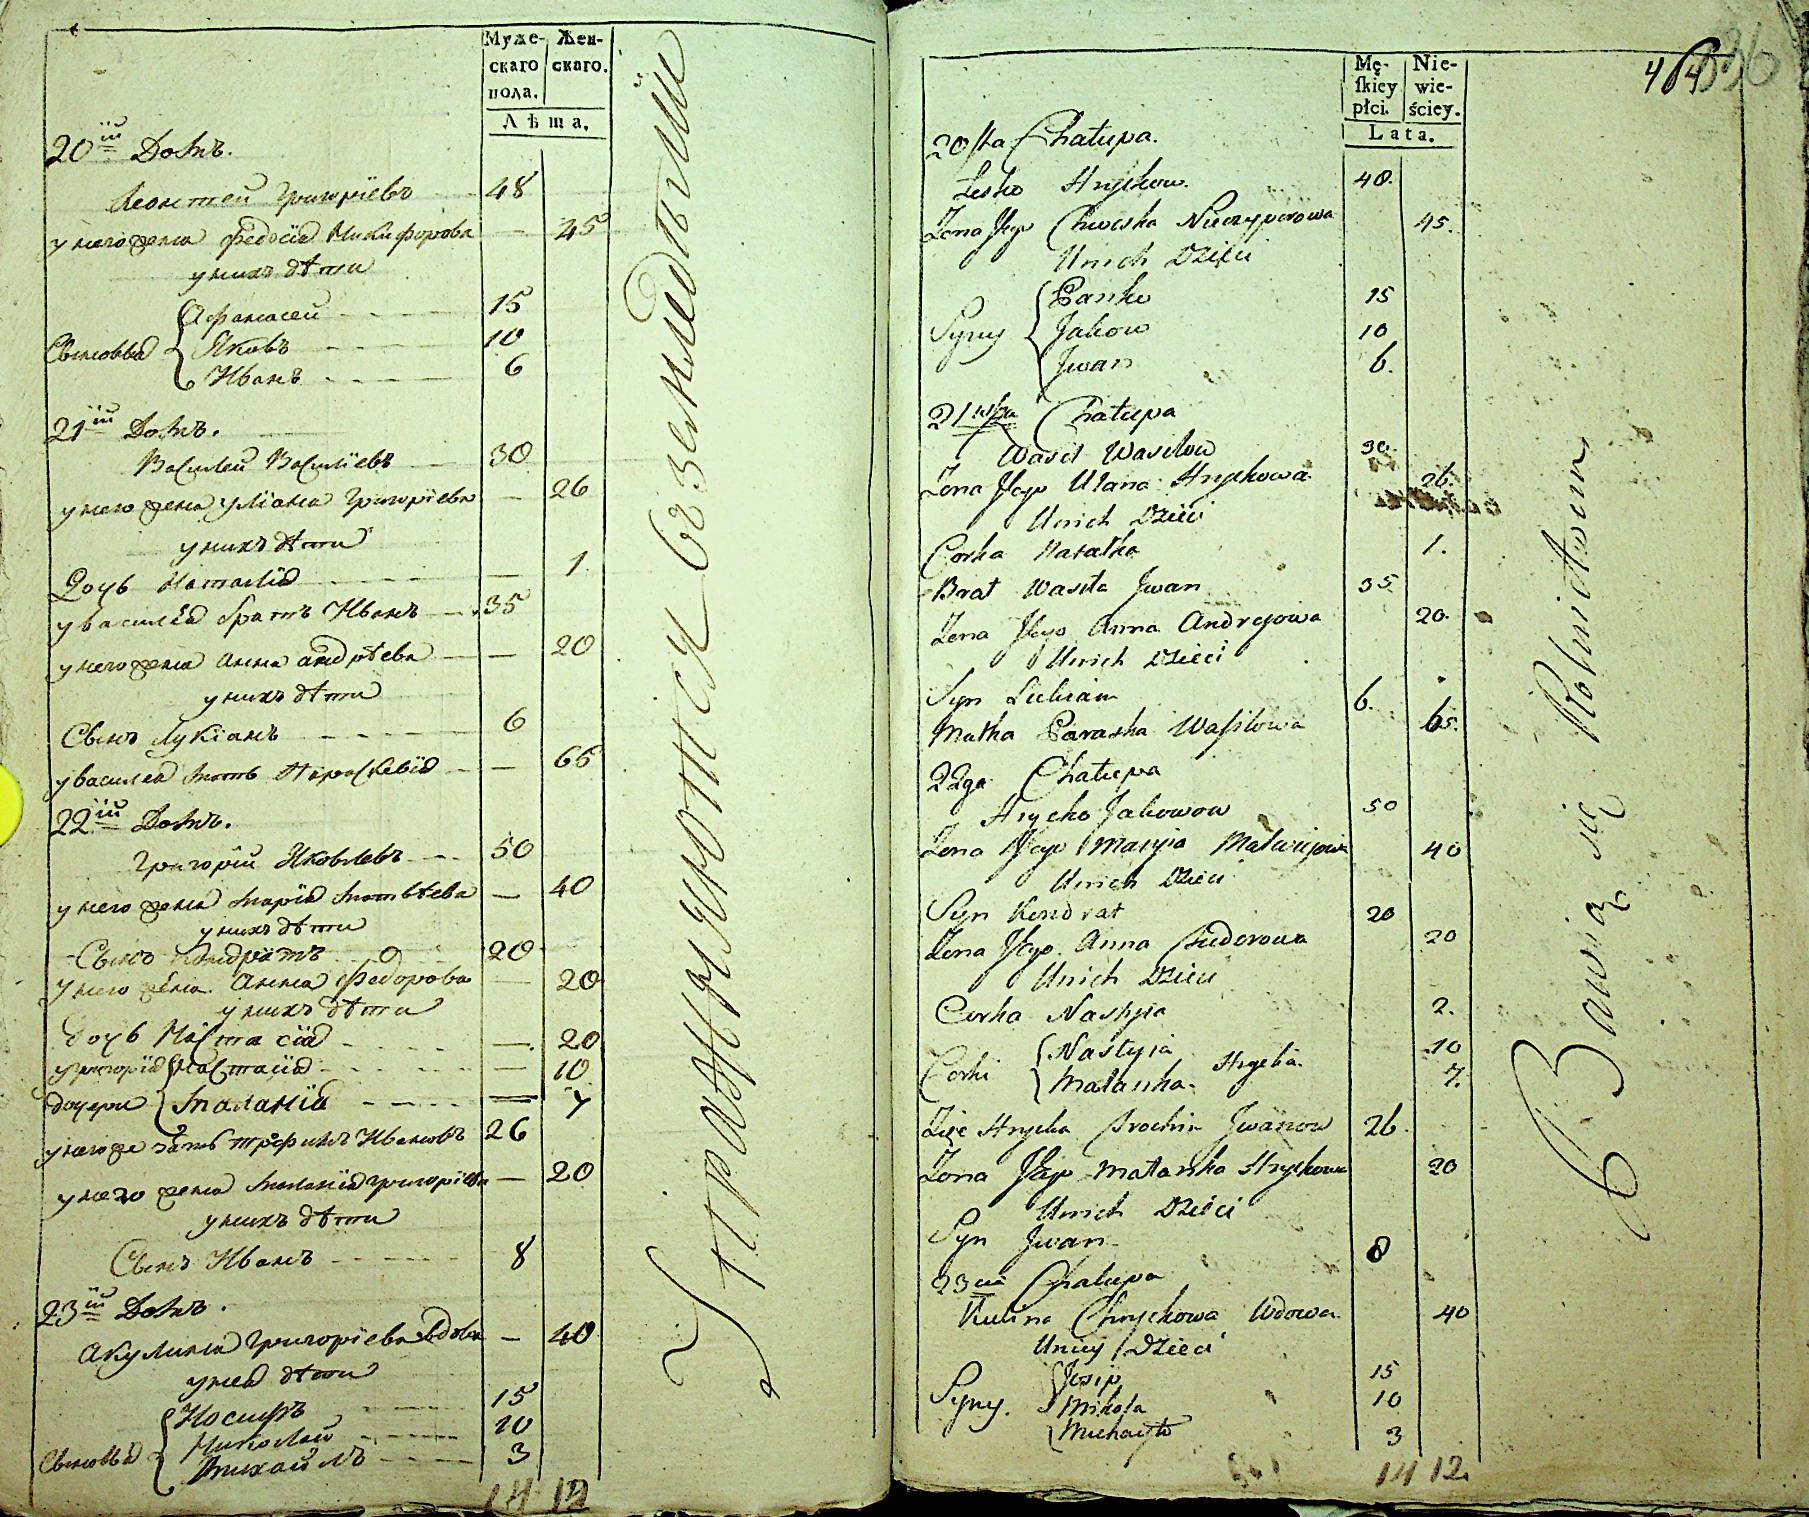 Муже-
скаго
пола.
Жен-
скаго.
Лѣта.
20ій Домъ.
Леонтей Григорїевъ 48
у него жена Федосїа Никифорова — 45
у нихъ дѣти
Сыновьа
Афанасей 15
Яковъ 10
Иванъ 6
21ій Домъ.
Василей Василїевъ 30
у него жена Улїана Григорїева — 26
у нихъ дѣти
Дочь Наталїа — 1
у Василїа братъ Иванъ 35
у него жена Анна Андрѣева — 20
у нихъ дѣти
Сынъ Лукїанъ 6
у Василїа мать Параскевїа — 65
22ій Домъ.
Григорїй Яковлевъ 50
у него жена Марїа Матвѣева — 40
у нихъ дѣти
Сынъ Кондратъ 20
у него жена Анна Федорова — 20
у нихъ дѣти
Дочь Настасїа — 20
у Григорїа
дочери
Настасїа — 10
Маланїа — 7
у него же зать Трофимъ Ивановъ 26
у него жена Маланїа Григорїева — 20
у нихъ дѣти
Сынъ Иванъ 8
23ій Домъ.
Акулина Григорїева вдова — 40
у неа дѣти
Сыновьа
Иосифъ 15
Николай 10
Михайлъ 3
14 12
Упражняются въ земледѣлїи
Mę-
skiey
płci.
Nie-
wie-
ściey.
Lata.
464
20sta Chałupa.
Lesko Hryckow. 48.
Zona Jego Chweska Niczyporowa 45.
Unich Dzieci
Syny
Panko 15
Jakow 10
Jwan 6.
21wsza Chałupa
Wasil Wasilow 30.
Zona Jego Ulana Hryckowa 26.
Unich Dzieci
Corka Natalka 1.
Brat Wasila Jwan 35
Zona Jego Anna Andrejowa 20.
Unich Dzieci
Syn Lukian 6.
Matka Paraska Wasilowa 65.
22ga Chałupa
Hrycko Jakowow 50
Zona Jego Maryia Matwiejowa 40
Unich Dzieci
Syn Kondrat 20
Zona Jego Anna Chwedorowa 20
Unich Dzieci
Corka Nastyia 2.
Corki
Nastyia 10
Małanka Hrycka 7.
Zięc Hrycka Trochim Jwanow 26.
Zona Jego Małanka Hryckowa 20
Unich Dzieci
Syn Jwan 8
23cia Chałupa
Kulina Chryckowa Wdowa 40
Uniey Dzieci
Syny.
Josip 15
Mikoła 10
Michayło 3
14 12.
Bawią się Rolnictwem